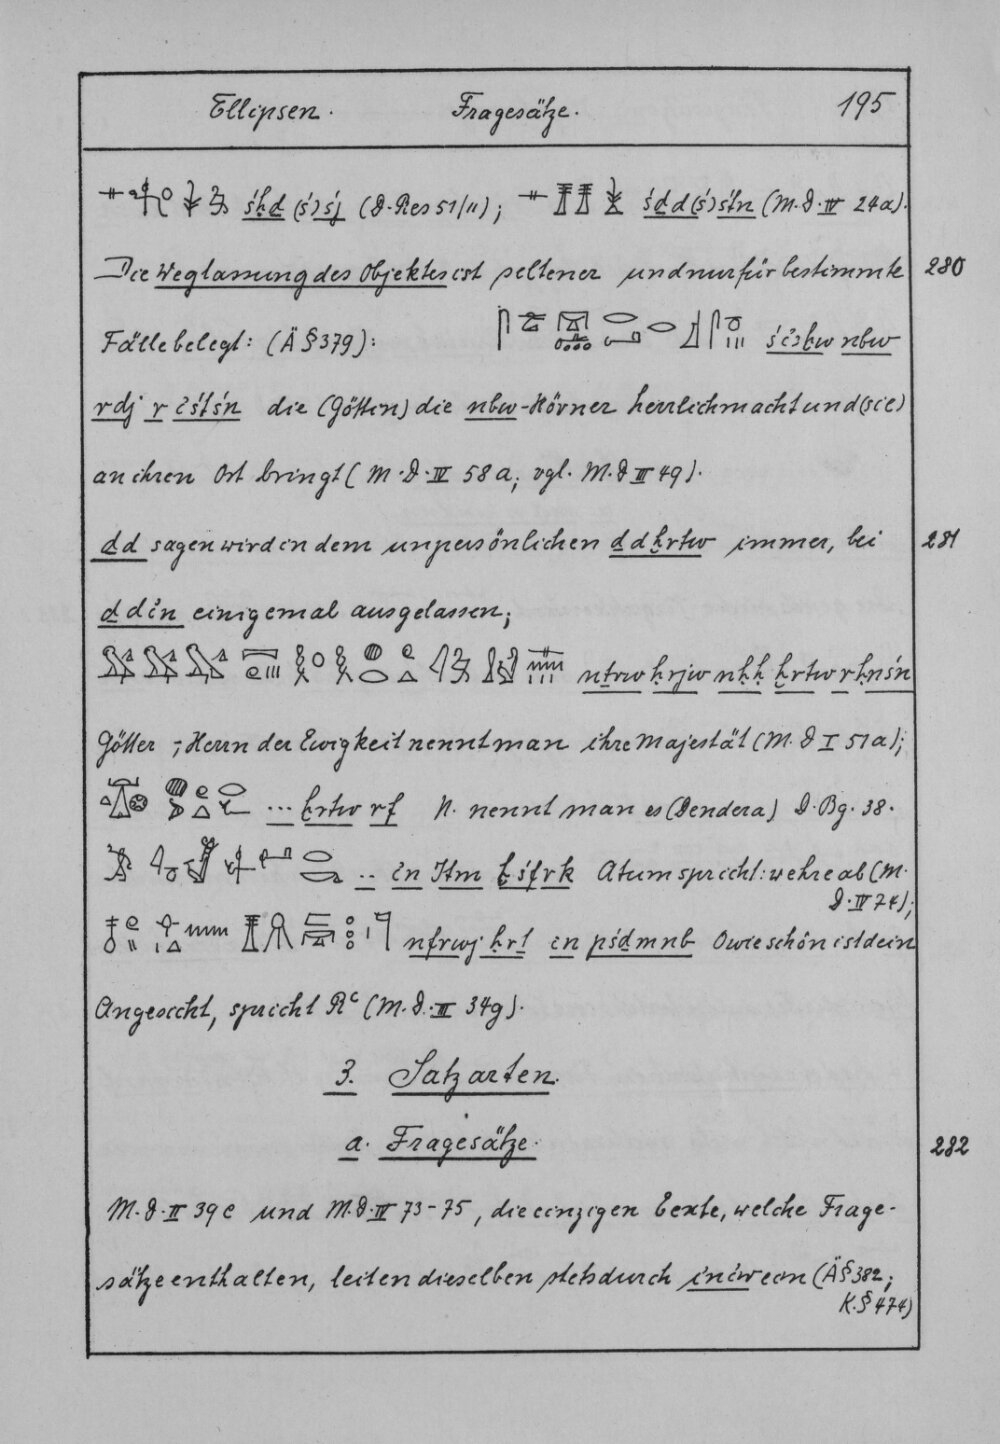 Ellipsen. Fragesätze. 195
śḥḏ (ś) śj (D. Res 51/11); śḏd (ś) śtn (M. D. IV 24a).
Die Weglassung des Objektes ist seltener und nur für bestimmte 280
Fälle belegt: (Ä § 379): nbw
rdj r śtśn die (Göttin) die nbw-Hörner herrlich macht und (sie)
an ihren Ort bringt (M. D. IV 58a; vgl. M. D III 49).
ḏd sagen wird in dem unpersönlichen ḏd ḫrtw immer, bei 281
ḏd in einigemal ausgelassen;
nṯrw ḥrjw nḥḥ ḫrtw r ḥnśn
Götter, Herrn der Ewigkeit nennt man ihre Majestät (M. D I 51a);
... ḫrtw rf N. nennt man es (Dendera) D. Bg. 38.
.. in Itm ḫśfrk Atum spricht: wehre ab (M.
D. IV 74);
nfrwj ḥrt in pśḏmnb O wie schön ist dein
Angesicht, spricht Rᶜ (M. D. II 34g).
3. Satzarten.
a. Fragesätze. 282
M. D. II 39e und M. D. IV 73-75, die einzigen Texte, welche Frage-
sätze enthalten, leiten dieselben stets durch iniw ein (Ä § 382;
K. § 474)